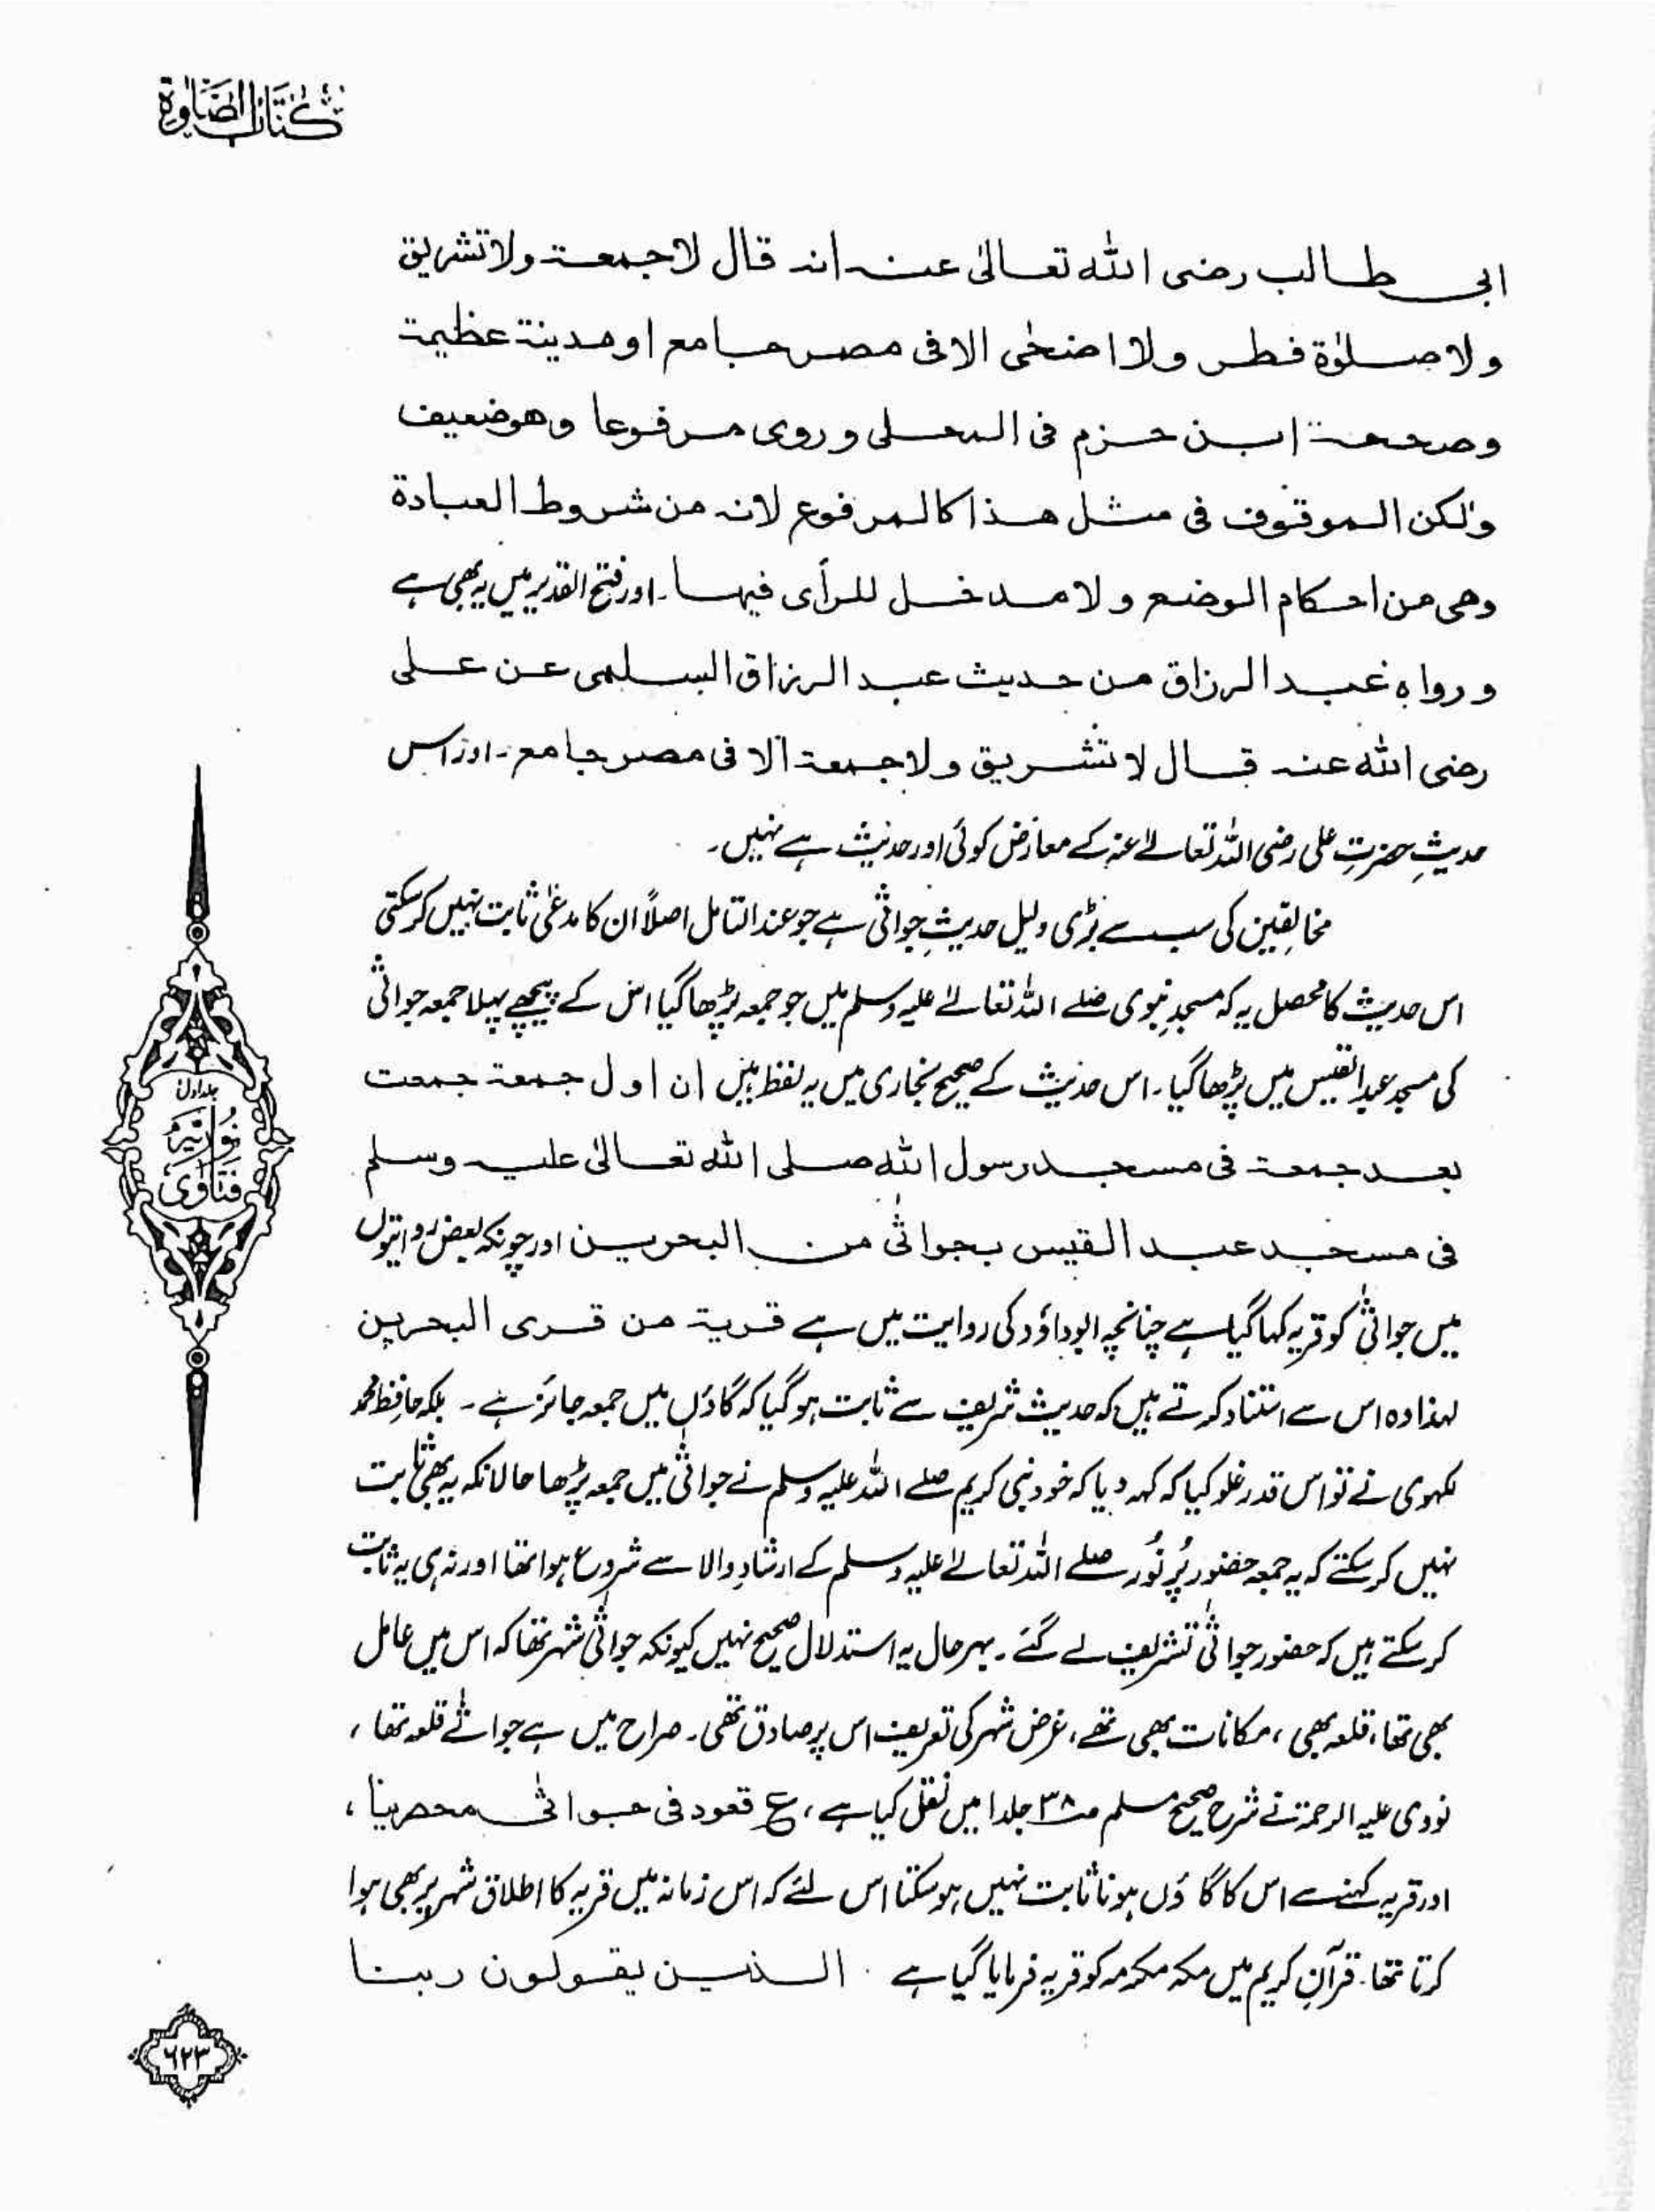 کتاب الصلوٰۃ
ابی طالب رضی اللہ تعالیٰ عنہ انہ قال لا جمعۃ ولا تشریق
ولا صلوٰۃ فطر ولا اضحٰی الا فی مصر جامع او مدینۃ عظیمۃ
وصححہ ابن حزم فی المحلی وروی مرفوعا وھو ضعیف
ولکن الموقوف فی مثل ھذا کالمرفوع لانہ من شروط العبادۃ
وھی من احکام الوضع ولا مدخل للرأی فیہا۔ اور فتح القدیر میں یہ بھی ہے
ورواہ عبد الرزاق من حدیث عبد الرزاق السلمی عن علی
رضی اللہ عنہ قال لا تشریق ولا جمعۃ الا فی مصر جامع۔ اور اس
حدیثِ حضرتِ علی رضی اللہ تعالےٰ عنہ کے معارض کوئی اور حدیث ہے نہیں۔
مخالفین کی سب سے بڑی دلیل حدیثِ جواثیٰ ہے جو عند التامل اصلاً ان کا مدعٰی ثابت نہیں کر سکتی
اس حدیث کا محصل یہ کہ مسجدِ نبوی صلے اللہ تعالےٰ علیہ وسلم میں جو جمعہ پڑھا گیا اس کے پیچھے پہلا جمعہ جواثیٰ
کی مسجد عبد القیس میں پڑھا گیا۔ اس حدیث کے صحیح بخاری میں یہ لفظ ہیں ان اول جمعۃ جمعت
بعد جمعۃ فی مسجد رسول اللہ صلی اللہ تعالیٰ علیہ وسلم
فی مسجد عبد القیس بجواثٰی من البحرین اور چونکہ بعض روایتوں
میں جواثیٰ کو قریہ کہا گیا ہے چنانچہ ابوداؤد کی روایت میں ہے قریۃ من قری البحرین
لہذا وہ اس سے استناد کرتے ہیں کہ حدیث شریف سے ثابت ہو گیا کہ گاؤں میں جمعہ جائز ہے۔ بلکہ حافظ محمد
لکھوی نے تو اس قدر غلو کیا کہ کہہ دیا کہ خود نبی کریم صلے اللہ علیہ وسلم نے جواثیٰ میں جمعہ پڑھا حالانکہ یہ بھی ثابت
نہیں کر سکتے کہ یہ جمعہ حضور پُر نُور صلے اللہ تعالےٰ علیہ وسلم کے ارشادِ والا سے شروع ہوا تھا اور نہ ہی یہ ثابت
کر سکتے ہیں کہ حضور جواثیٰ تشریف لے گئے۔ بہرحال یہ استدلال صحیح نہیں کیونکہ جواثیٰ شہر تھا کہ اس میں عامل
بھی تھا، قلعہ بھی، مکانات بھی تھے، غرض شہر کی تعریف اس پر صادق تھی۔ صراح میں ہے جواثے قلعہ تھا،
نودی علیہ الرحمۃ نے شرح صحیح مسلم صـ۳۸ جلد۱ میں نقل کیا ہے، ع قعود فی جواثٰی محصرینا،
اور قریہ کہنے سے اس کا گاؤں ہونا ثابت نہیں ہو سکتا اس لئے کہ اس زمانہ میں قریہ کا اطلاق شہر پر بھی ہوا
کرتا تھا۔ قرآنِ کریم میں مکہ مکرمہ کو قریہ فرمایا گیا ہے۔ الذین یقولون ربنا
جلد اول
نوریہ
فتاویٰ
۶۲۳